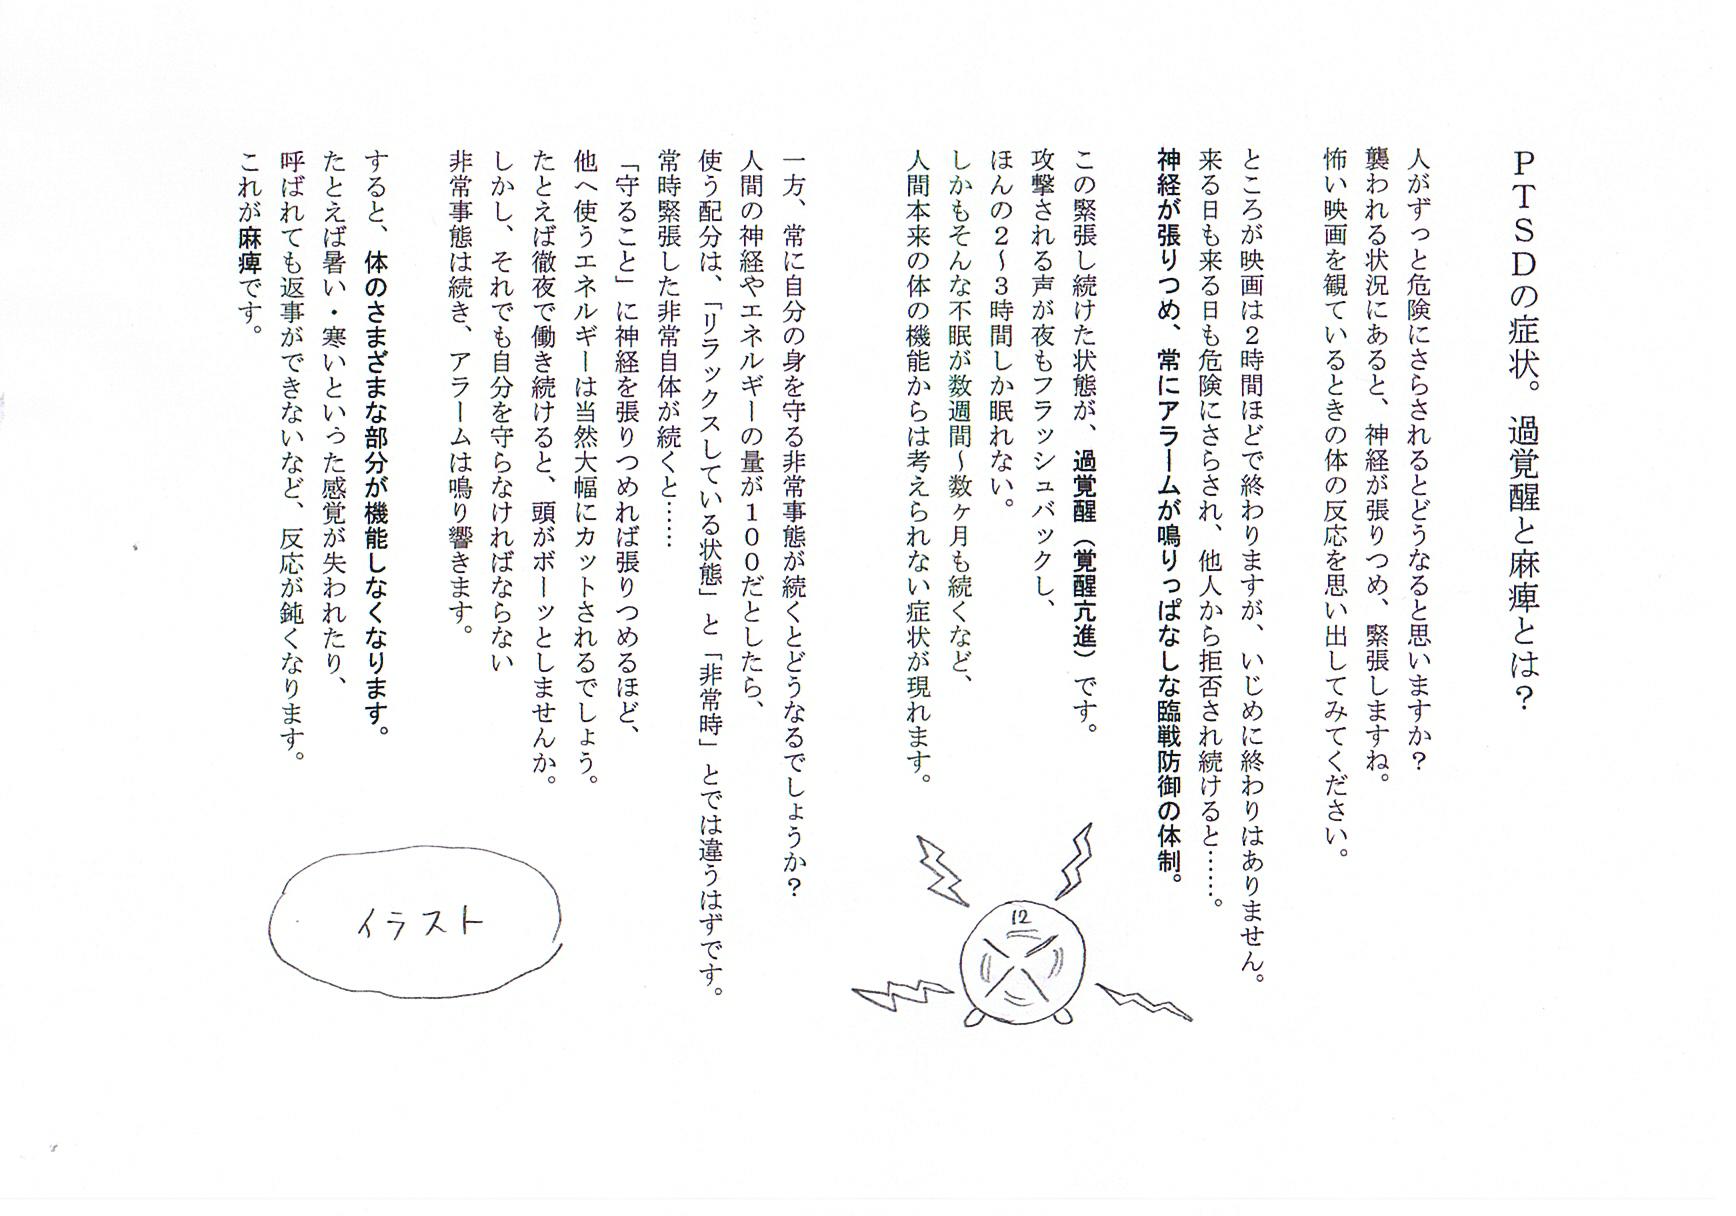 PTSDの症状。過覚醒と麻痺とは？
人がずっと危険にさらされるとどうなると思いますか？
襲われる状況にあると、神経が張りつめ、緊張しますね。
怖い映画を観ているときの体の反応を思い出してみてください。
ところが映画は２時間ほどで終わりますが、いじめに終わりはありません。
来る日も来る日も危険にさらされ、他人から拒否され続けると……。
神経が張りつめ、常にアラームが鳴りっぱなしな臨戦防御の体制。
この緊張し続けた状態が、過覚醒（覚醒亢進）です。
攻撃される声が夜もフラッシュバックし、
ほんの２～３時間しか眠れない。
しかもそんな不眠が数週間～数ヶ月も続くなど、
人間本来の体の機能からは考えられない症状が現れます。
12
一方、常に自分の身を守る非常事態が続くとどうなるでしょうか？
人間の神経やエネルギーの量が１００だとしたら、
使う配分は、「リラックスしている状態」と「非常時」とでは違うはずです。
常時緊張した非常自体が続くと……
「守ること」に神経を張りつめれば張りつめるほど、
他へ使うエネルギーは当然大幅にカットされるでしょう。
たとえば徹夜で働き続けると、頭がボーッとしませんか。
しかし、それでも自分を守らなければならない
非常事態は続き、アラームは鳴り響きます。
すると、体のさまざまな部分が機能しなくなります。
たとえば暑い・寒いといった感覚が失われたり、
呼ばれても返事ができないなど、反応が鈍くなります。
これが麻痺です。
イラスト